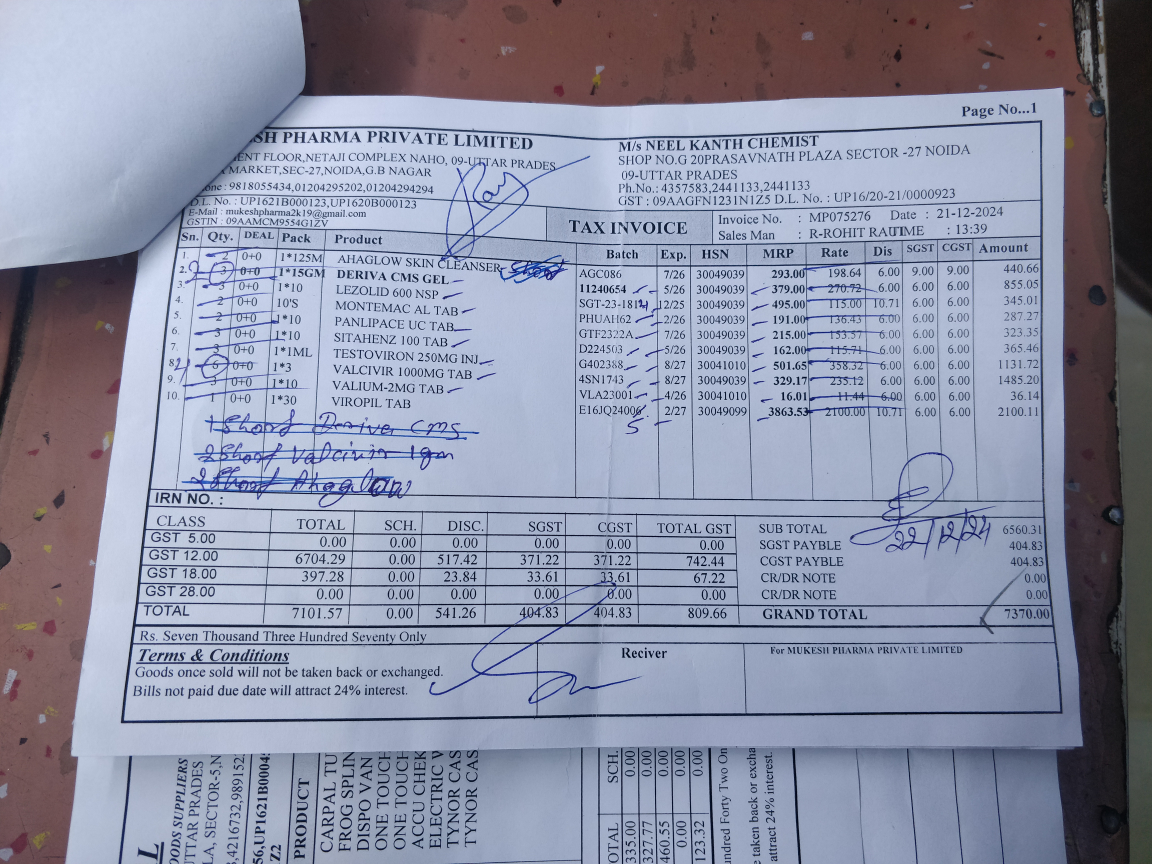 Page No...1
SH PHARMA PRIVATE LIMITED
ENT FLOOR,NETAJI COMPLEX NAHO, 09-UTTAR PRADES
MARKET,SEC-27,NOIDA,G.B NAGAR
one : 9818055434,01204295202,01204294294
D.L. No. : UP1621B000123,UP1620B000123
E-Mail : mukeshpharma2k19@gmail.com
GSTIN : 09AAMCM9554G1ZV
M/s NEEL KANTH CHEMIST
SHOP NO.G 20PRASAVNATH PLAZA SECTOR -27 NOIDA
09-UTTAR PRADES
Ph.No.: 4357583,2441133,2441133
GST : 09AAGFN1231N1Z5 D.L. No. : UP16/20-21/0000923
TAX INVOICE
Invoice No. : MP075276 Date : 21-12-2024
Sales Man : R-ROHIT RAUTIME : 13:39
Sn. Qty. DEAL Pack Product Batch Exp. HSN MRP Rate Dis SGST CGST Amount
1. 2 0+0 1*125M AHAGLOW SKIN CLEANSER AGC086 7/26 30049039 293.00 198.64 6.00 9.00 9.00 440.66
2. 3 0+0 1*15GM DERIVA CMS GEL 11240654 5/26 30049039 379.00 270.72 6.00 6.00 6.00 855.05
3. 3 0+0 1*10 LEZOLID 600 NSP SGT-23-1814 12/25 30049039 495.00 115.00 10.71 6.00 6.00 345.01
4. 2 0+0 10'S MONTEMAC AL TAB PHUAH62 2/26 30049039 191.00 136.43 6.00 6.00 6.00 287.27
5. 2 0+0 1*10 PANLIPACE UC TAB GTF2322A 7/26 30049039 215.00 153.57 6.00 6.00 6.00 323.35
6. 3 0+0 1*10 SITAHENZ 100 TAB D224503 5/26 30049039 162.00 115.71 6.00 6.00 6.00 365.46
7. 3 0+0 1*1ML TESTOVIRON 250MG INJ G402388 8/27 30041010 501.65 358.32 6.00 6.00 6.00 1131.72
8. 6 0+0 1*3 VALCIVIR 1000MG TAB 4SN1743 8/27 30049039 329.17 235.12 6.00 6.00 6.00 1485.20
9. 3 0+0 1*10 VALIUM-2MG TAB VLA23001 4/26 30041010 16.01 11.44 6.00 6.00 6.00 36.14
10. 1 0+0 1*30 VIROPIL TAB E16JQ24006 2/27 30049099 3863.53 2100.00 10.71 6.00 6.00 2100.11
5
1 Short Deriva CMS
2 Short Valcivir 1gm
2 Short Ahaglow
IRN NO. :
CLASS TOTAL SCH. DISC. SGST CGST TOTAL GST
GST 5.00 0.00 0.00 0.00 0.00 0.00 0.00
GST 12.00 6704.29 0.00 517.42 371.22 371.22 742.44
GST 18.00 397.28 0.00 23.84 33.61 33.61 67.22
GST 28.00 0.00 0.00 0.00 0.00 0.00 0.00
TOTAL 7101.57 0.00 541.26 404.83 404.83 809.66
22/12/24
SUB TOTAL 6560.31
SGST PAYBLE 404.83
CGST PAYBLE 404.83
CR/DR NOTE 0.00
CR/DR NOTE 0.00
GRAND TOTAL 7370.00
Rs. Seven Thousand Three Hundred Seventy Only
Terms & Conditions
Goods once sold will not be taken back or exchanged.
Bills not paid due date will attract 24% interest.
Reciver
For MUKESH PHARMA PRIVATE LIMITED
OODS SUPPLIERS
UTTAR PRADES
LA, SECTOR-5,N
,4216732,989152
56,UP1621B0004
Z2
PRODUCT
CARPAL TU
FROG SPLIN
DISPO VAN
ONE TOUCH
ONE TOUCH
ACCU CHEK
ELECTRIC W
TYNOR CAS
TYNOR CAS
OTAL SCH.
335.00 0.00
327.77 0.00
460.55 0.00
0.00 0.00
123.32 0.00
undred Forty Two On
e taken back or excha
attract 24% interest.